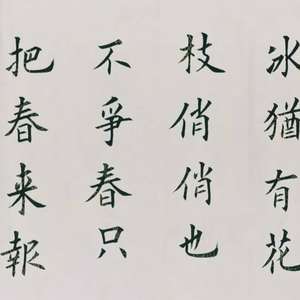 冰猶有花
枝俏俏也
不爭春只
把春来報